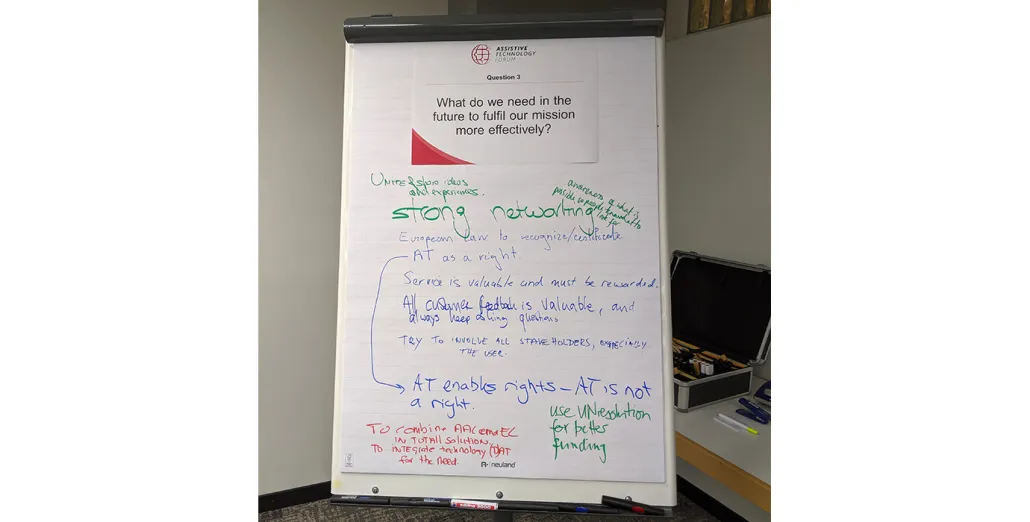 ASSISTIVE
TECHNOLOGY
FORUM
Question 3
What do we need in the
future to fulfil our mission
more effectively?
UNITE & share ideas
and experiences.
awareness of what is
possible so people know what to
look for
strong networking
European law to recognize/certificate
AT as a right.
Service is valuable and must be rewarded.
All customer feedback is valuable, and
always keep asking questions
TRY TO INVOLVE ALL STAKEHOLDERS, ESPECIALLY
THE USER.
AT enables rights – AT is not
a right.
use UN resolution
for better
funding
TO combine AAC and EC
IN TOTAll SOLUTION.
TO INTEGRATE technology AT
for the need.
neuland